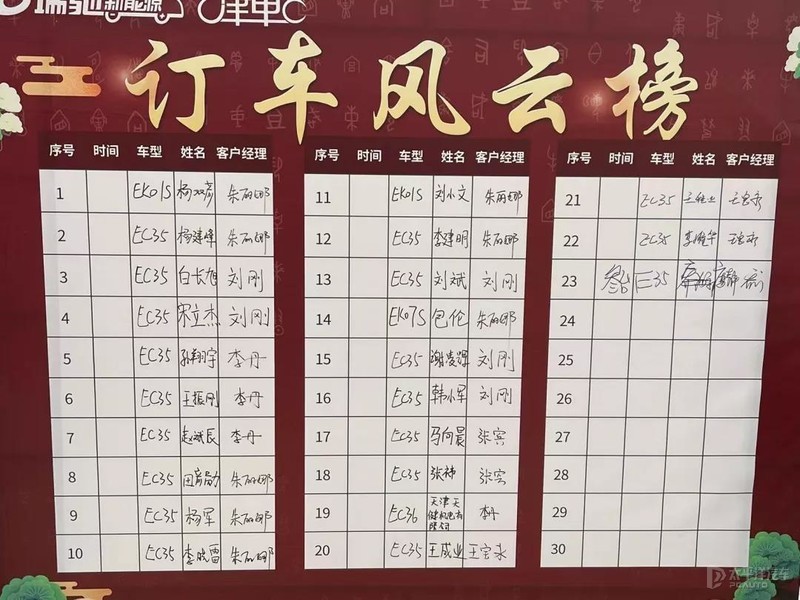 瑞驰新能源
津車
订车风云榜
序号 时间 车型 姓名 客户经理
1 EK01S 杨双彦 朱丽娜
2 EC35 杨建峰 朱丽娜
3 EC35 白长旭 刘刚
4 EC35 宋立杰 刘刚
5 EC35 孙翔宇 李丹
6 EC35 王振刚 李丹
7 EC35 赵斌辰 李丹
8 EC35 朱丽娜
9 EC35 杨军 朱丽娜
10 EC35 李晓雷 朱丽娜
序号 时间 车型 姓名 客户经理
11 EK01S 刘小文 朱丽娜
12 EC35 李建明 朱丽娜
13 EC35 刘斌 刘刚
14 EK07S 包伦 朱丽娜
15 EC35 谢凌翔 刘刚
16 EC35 韩小军 刘刚
17 EC35 马向晨 张宾
18 EC35 张祎 张宾
19 EC36 天津天 李丹
20 EC35 王成业 王宝永
序号 时间 车型 姓名 客户经理
21 EC35 王宝永
22 EC35 李海华 王宝永
23 35
24
25
26
27
28
29
30
太平洋汽车
PCAUTO